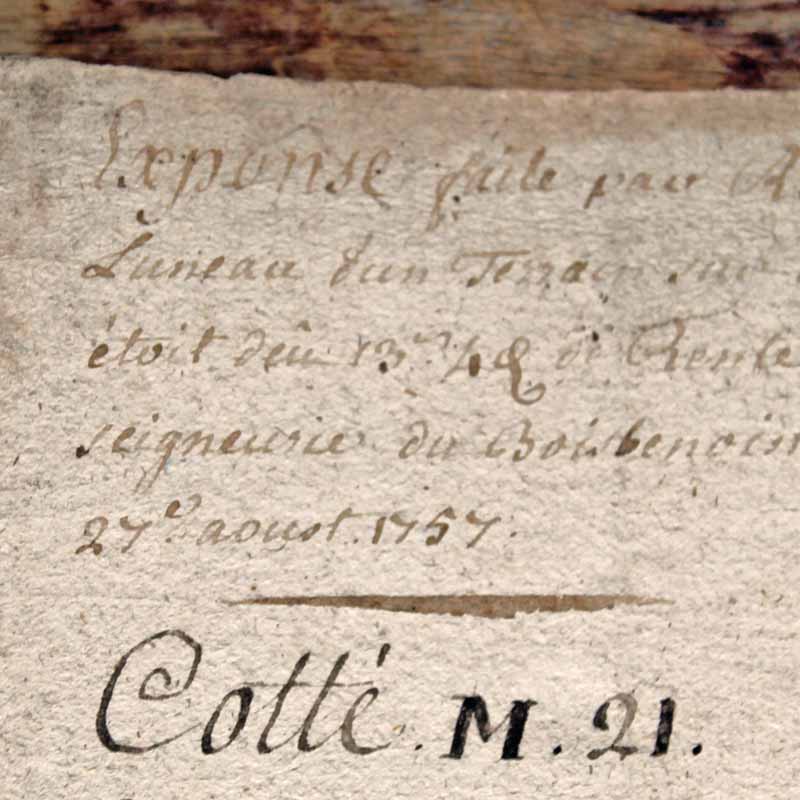 Exponse faite par
Luneau d'un Terrain sur
étoit deû 13 s 4 d de Rente
seigneurie du Boisbenoi
27e aoust 1757.
Cotté. M. 21.